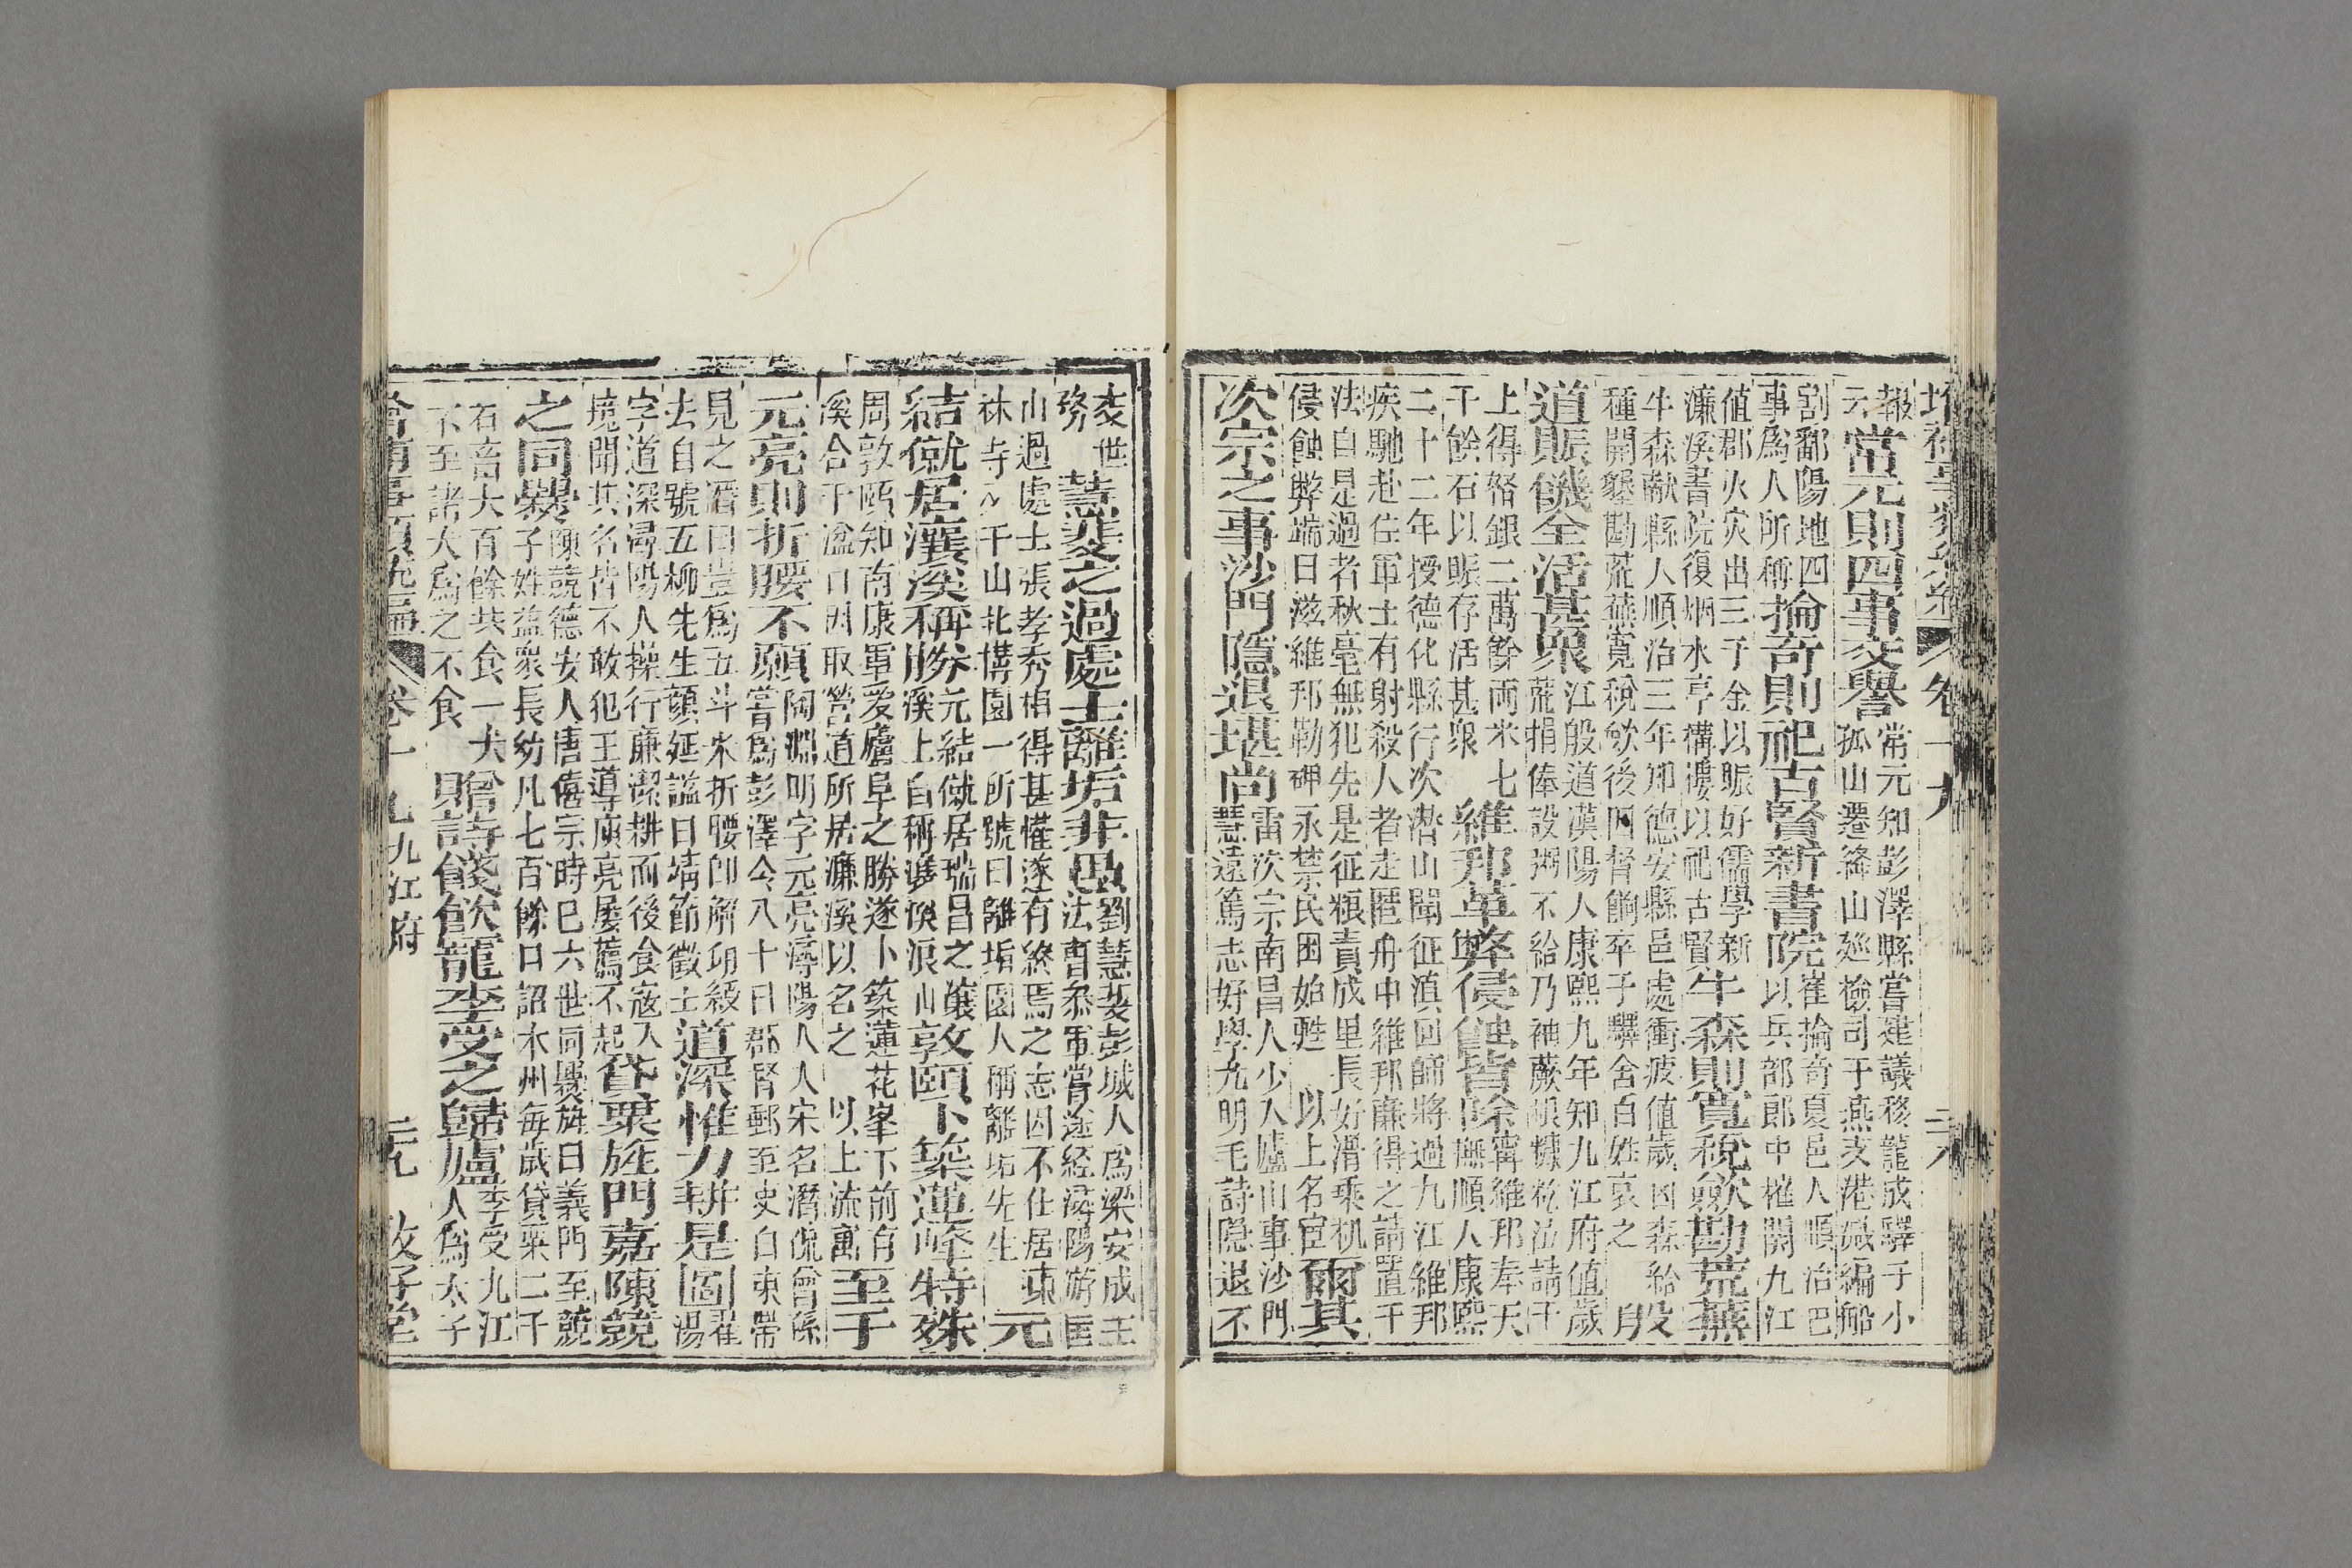 報
云當元則四事交譽常元知彭澤縣嘗建議移龍成驛于小
孤山遷峰山廵檢司于燕支港减編船
割鄱陽地四
事爲人所稱掄奇則祀古賢新書院崔掄奇夏邑人順治
以兵部郎中榷關九江
值郡火灾出三千金以賑好儒學新
濂溪書院復烟水亭構禮以祀古賢牛森則寬稅斂勘荒蕪
牛森献縣人順治三年知德安縣邑處衝疲值歲凶森給
種開墾勘荒蕪寛稅斂後因督餉卒于驛舍百姓哀之
道賑饑全活甚衆江殷道漢陽人康熙九年知九江府值歲
荒捐俸設粥不給乃袖蕨根糠粃泣請于
上得帑銀二萬餘両米七
千餘石以賑存活甚衆維邦革弊侵蝕皆除甯維邦奉天
撫順人康熙
二十二年授德化縣行次潜山聞征滇回師將過九江維邦
疾馳赴任軍士有射殺人者走匿舟中維邦亷得之請置于
法自是過者秋毫無犯先是征粮責成里長好滑乘机
侵蝕弊端日滋維邦勒碑永禁民困始甦以上名宦爾其
次宗之事沙門隱退堪尚雷次宗南昌人少入廬山事沙門
慧遠篤志好學尤明毛詩隐退不
交世
務慧斐之過處士離垢非愚劉慧斐彭城人爲梁安成王
法曹叅軍嘗途経潯陽游匡
山過處士張孝秀相得甚懽遂有終焉之志因不仕居東
林寺又于山北構園一所號曰離垢園人稱離垢先生元
結僦居瀼溪稱勝元結僦居瑞昌之瀼
溪上自稱漫浪敦頤卜築蓮峰特殊
周敦頤知南康軍爱廬阜之勝遂卜築蓮花峯下前有
溪合于湓口因取營道所居濂溪以名之以上流寓至于
元亮則折腰不願陶淵明字元亮潯陽人入宋名潛侃曾孫
嘗爲彭澤令八十日郡督郵至吏白束帶
見之潛曰豈爲五斗米折腰卽解印綬
去自號五柳先生顔延謚曰靖節徵士道深惟力耕是圖翟湯
字道深潯陽人操行亷潔耕而後食寇入
境聞其名皆不敢犯王導庾亮屡薦不起貸粟旌門嘉陳兢
之同爨陳兢德安人唐僖宗時已六世同爨旌曰義門至兢
子姓益衆長幼凡七百餘口詔本州每歲貸粟二千
石畜犬百餘共食一犬
不至諸犬爲之不食贈詩餞飲寵李受之歸廬李受九江
人爲太子
卷十九九江府